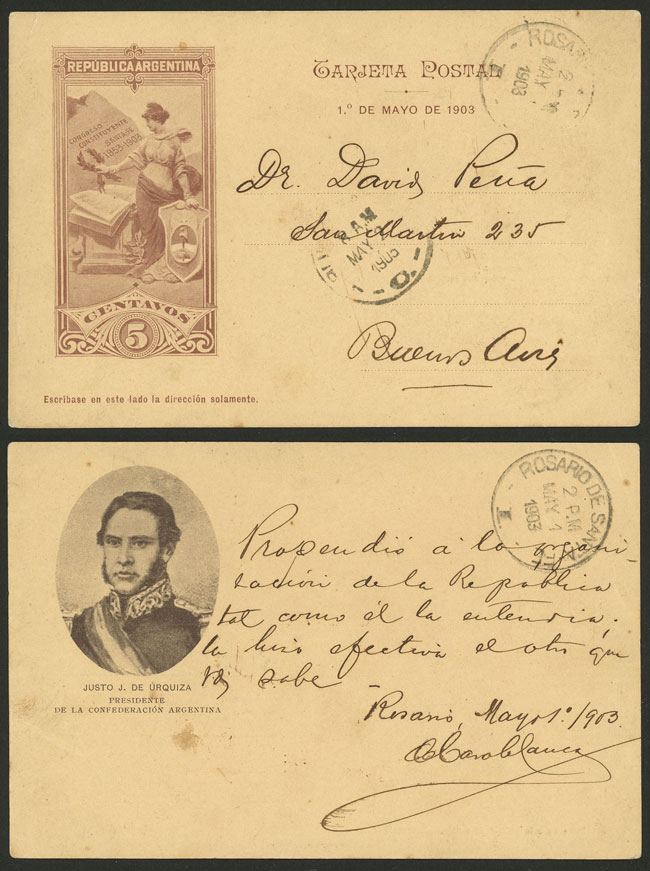 REPÚBLICA ARGENTINA
CONGRESO
CONSTITUYENTE
SANTA FE
1853-1903
CENTAVOS
5
TARJETA POSTAL
1.º DE MAYO DE 1903
ROSA
2
MAY
1903
I
Dr. David Peña
San Martin 235
Buenos Aires
A.M
MAY
1903
Escríbase en este lado la dirección solamente.
JUSTO J. DE URQUIZA
PRESIDENTE
DE LA CONFEDERACIÓN ARGENTINA
ROSARIO DE SANTA FE
2 P.M.
MAY 1
1903
I
Propendió á la organi-
zación de la Republica
tal como él la entendia.
la hizo efectiva el otro que
Vd sabe
Rosario, Mayo 1º/903.
Casablanca